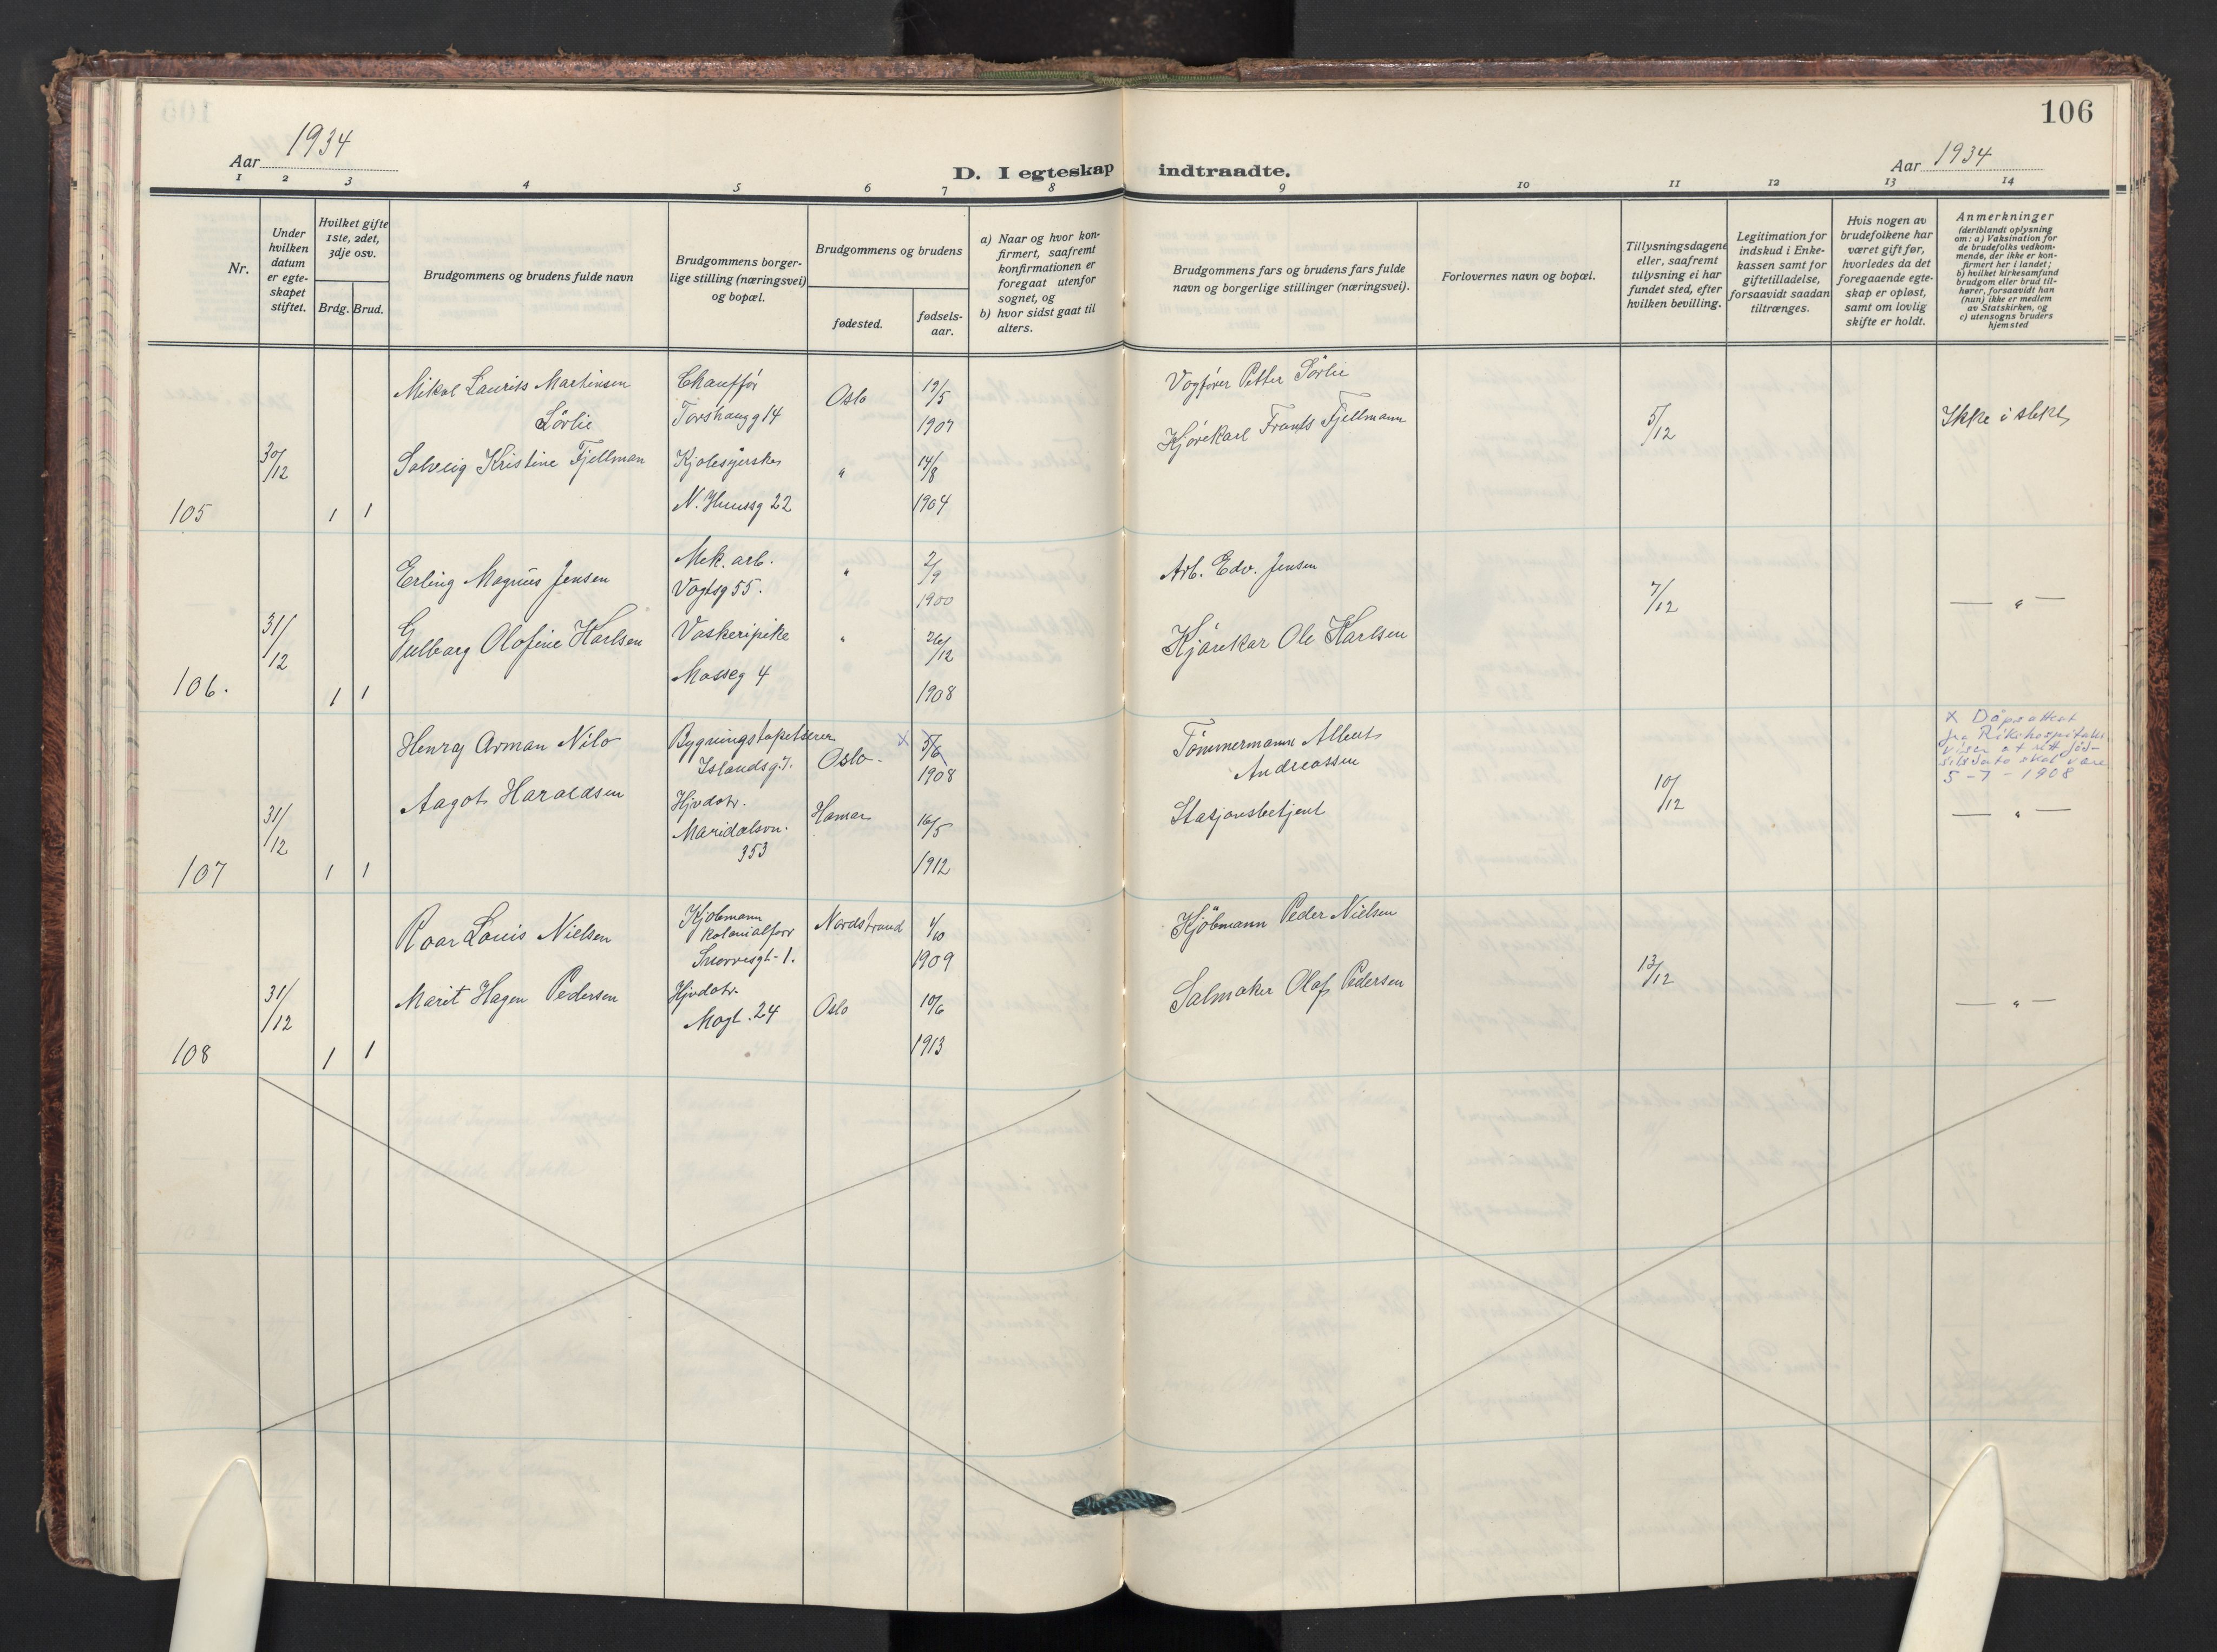 106
Aar 1934
D. I egteskap indtraadte.
Aar 1934
1 2 3 4 5 6 7 8 9 10 11 12 13 14
Nr.
Under
hvilken
datum
er egte-
skapet
stiftet.
Hvilket gifte
1ste, 2det,
3dje osv.
Brdg. Brud.
Brudgommens og brudens fulde navn
Brudgommens borger-
lige stilling (næringsvei)
og bopæl.
Brudgommens og brudens
fødested.
fødsels-
aar.
a) Naar og hvor kon-
firmert, saafremt
konfirmationen er
foregaat utenfor
sognet, og
b) hvor sidst gaat til
alters.
Brudgommens fars og brudens fars fulde
navn og borgerlige stillinger (næringsvei).
Forlovernes navn og bopæl.
Tillysningsdagene
eller, saafremt
tillysning ei har
fundet sted, efter
hvilken bevilling.
Legitimation for
indskud i Enke-
kassen samt for
giftetilladelse,
forsaavidt saadan
tiltrænges.
Hvis nogen av
brudefolkene har
været gift før,
hvorledes da det
foregaaende egte-
skap er opløst,
samt om lovlig
skifte er holdt.
Anmerkninger
(deriblandt oplysning
om: a) Vaksination for
de brudefolks vedkom-
mende, der ikke er kon-
firmert her i landet;
b) hvilket kirkesamfund
brudgom eller brud til-
hører, forsaavidt han
(hun) ikke er medlem
av Statskirken, og
c) utensogns bruders
hjemsted
105
30/12
1 1
Mikal Laurits Martinsen
Sörlie
Chauffør
Torshaugg 14
Oslo
19/5
1907
Vognfører Petter Sörlie
5/12
Ikke i slekt
Solveig Kristine Fjellman
Kjolesyerske
N. Huusg 22
"
14/8
1904
Kjørekarl Frants Fjellmann
106.
31/12
1 1
Erling Magnus Jensen
Mek. arb.
Vogtsg 55.
"
2/9
1900
Arb. Edv. Jensen
7/12
— " —
Gulborg Olofine Karlsen
Vaskeripike
Mosseg 4
"
26/12
1908
Kjörekar Ole Karlsen
107
31/12
1 1
Henry Arman Nilo
Bygningstapetserer
Islandsg. 7.
Oslo.
x 5/6
1908
Tömmermann Albert
Andreassen
10/12
x Dåpsattest
fra Rikshospitalet
viser at rett föd-
selsdato skal være
5-7-1908
— " —
Aagot Haraldsen
Hjvdatr.
Maridalsvn.
353
Hamar
16/5
1912
Stasjonsbetjent
108
31/12
1 1
Roar Louis Nielsen
Kjøbmann
kolonialforr
Snorresgt-1.
Nordstrand
1/10
1909
Kjöbmann Peder Nielsen
13/12
— " —
Marit Hagen Pedersen
Hjvdatr.
24
Oslo
10/6
1913
Salmaker Olaf Pedersen